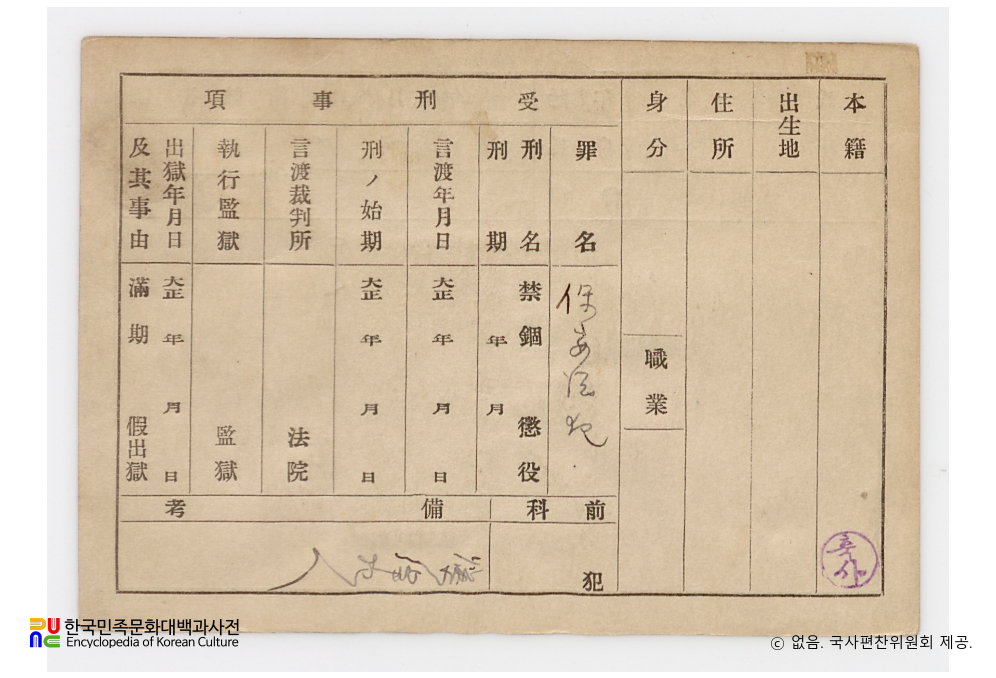 本籍
出生地
住所
身分
職業
受刑事項
罪名
保安法犯
刑名
刑期
禁錮 懲役
年 月
言渡年月日
大正 年 月 日
刑ノ始期
大正 年 月 日
言渡裁判所
法院
執行監獄
監獄
出獄年月日
及其事由
大正 年 月 日
滿期 假出獄
前科
犯
備考
한국민족문화대백과사전
Encyclopedia of Korean Culture
ⓒ 없음. 국사편찬위원회 제공.